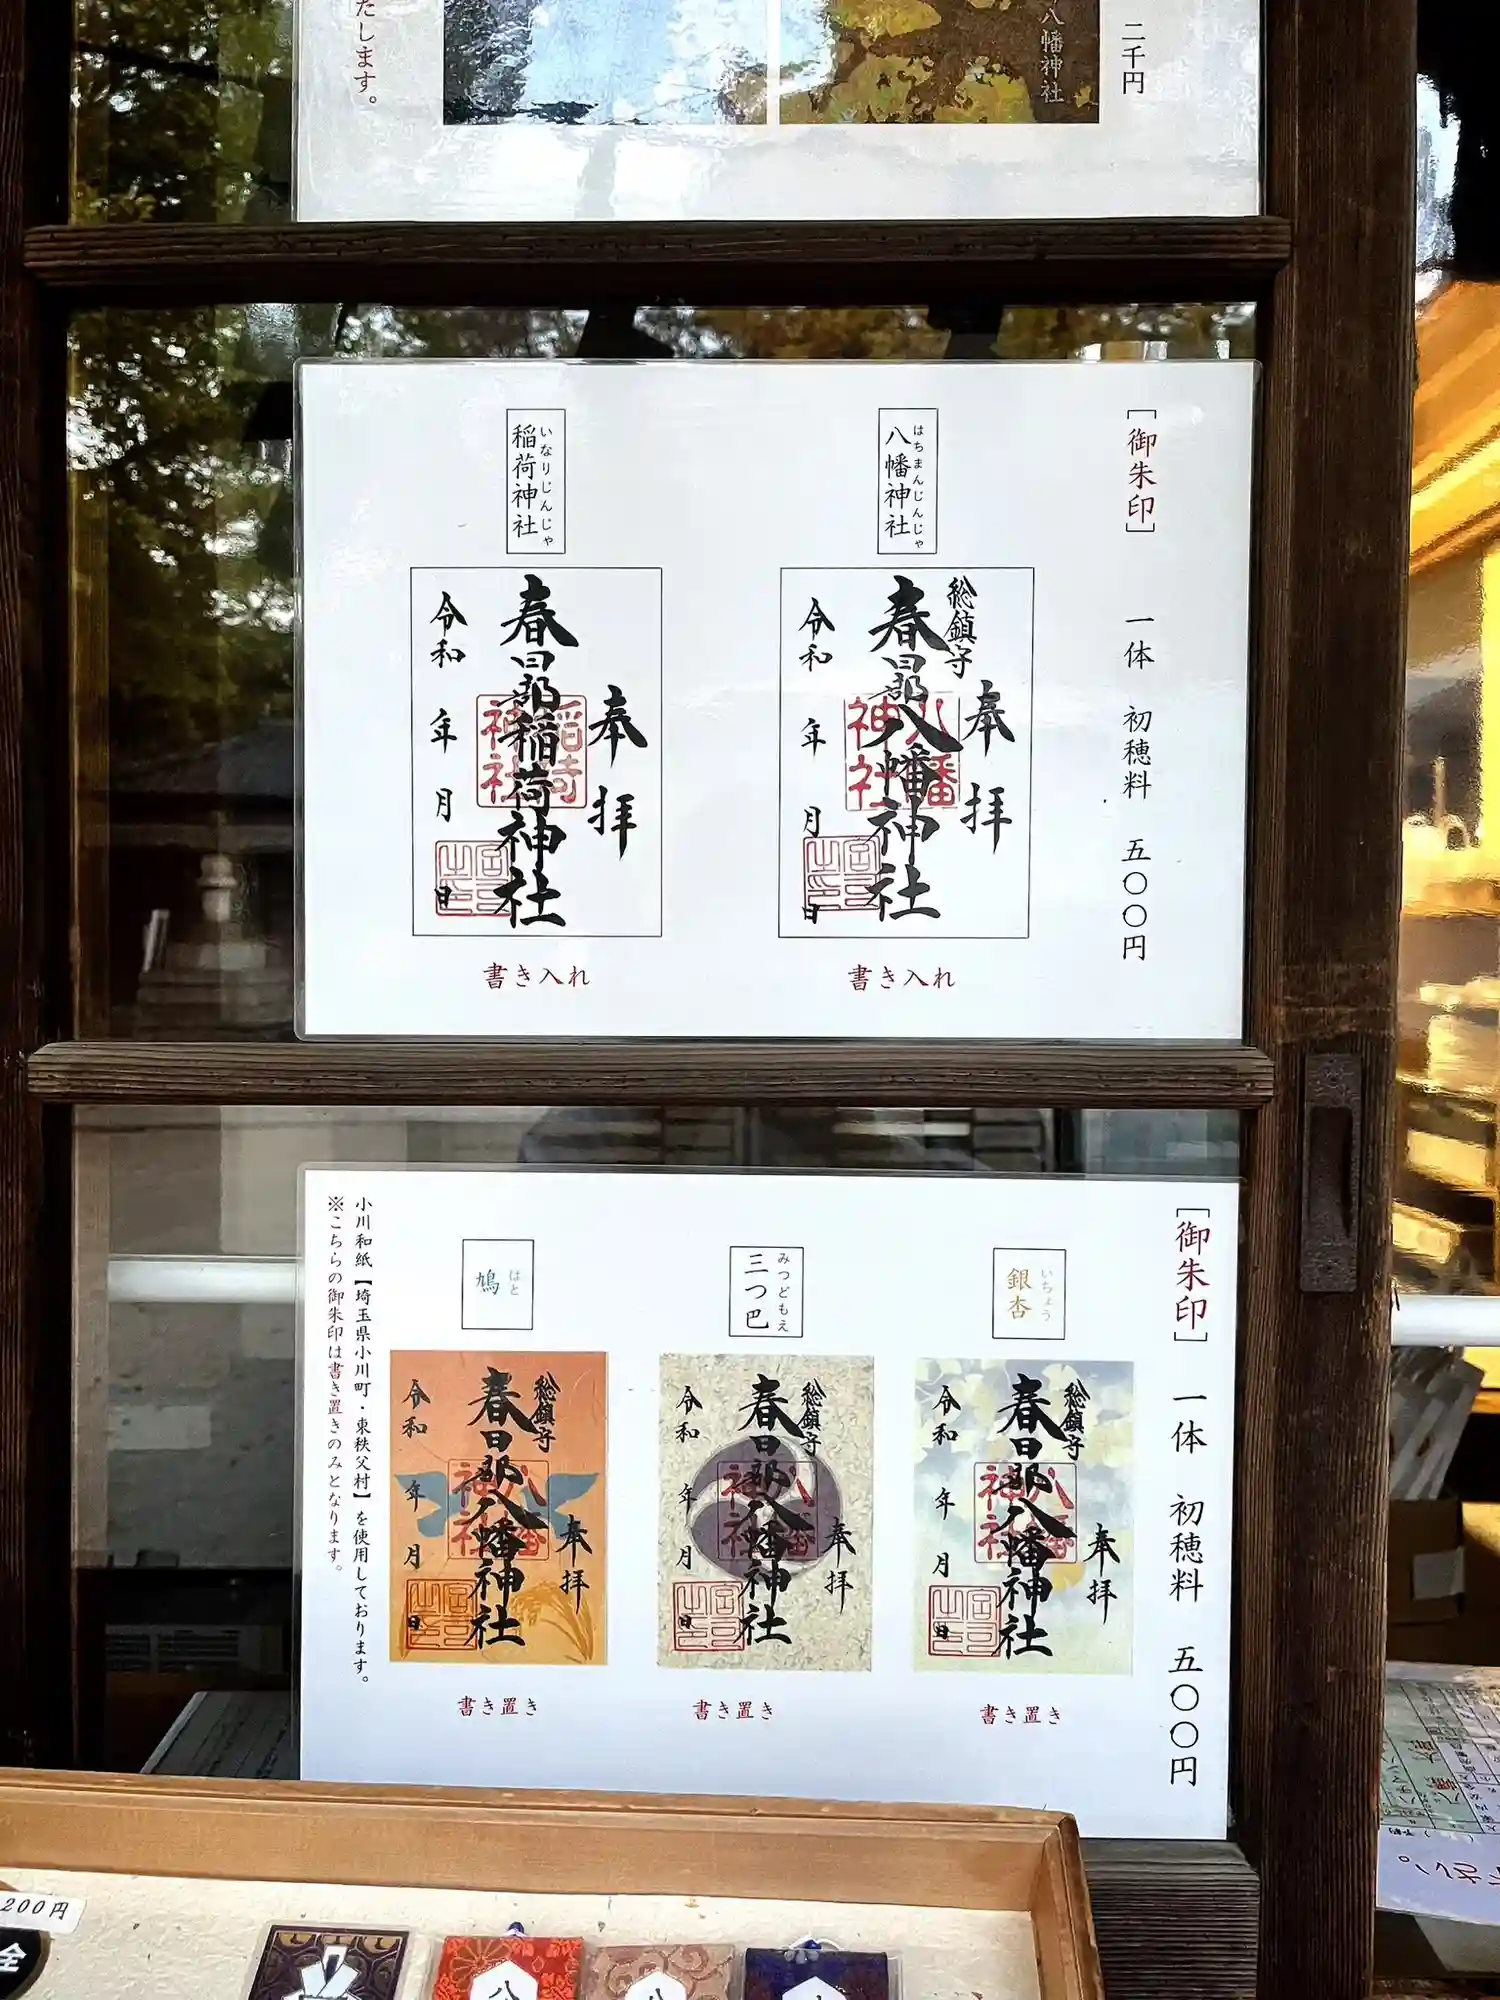 二千円
八幡神社
たします。
［御朱印］　一体　初穂料　五〇〇円
はちまんじんじゃ
八幡神社
総鎮守
奉拝
春日部八幡神社
八幡神社
令和　年　月　日
書き入れ
いなりじんじゃ
稲荷神社
奉拝
春日部稲荷神社
稲荷神社
令和　年　月　日
書き入れ
［御朱印］　一体　初穂料　五〇〇円
いちょう
銀杏
総鎮守
奉拝
春日部八幡神社
八幡神社
令和　年　月　日
書き置き
みつどもえ
三つ巴
総鎮守
奉拝
春日部八幡神社
八幡神社
令和　年　月　日
書き置き
はと
鳩
総鎮守
奉拝
春日部八幡神社
八幡神社
令和　年　月　日
書き置き
小川和紙【埼玉県小川町・東秩父村】を使用しております。
※こちらの御朱印は書き置きのみとなります。
200円
全
八
八